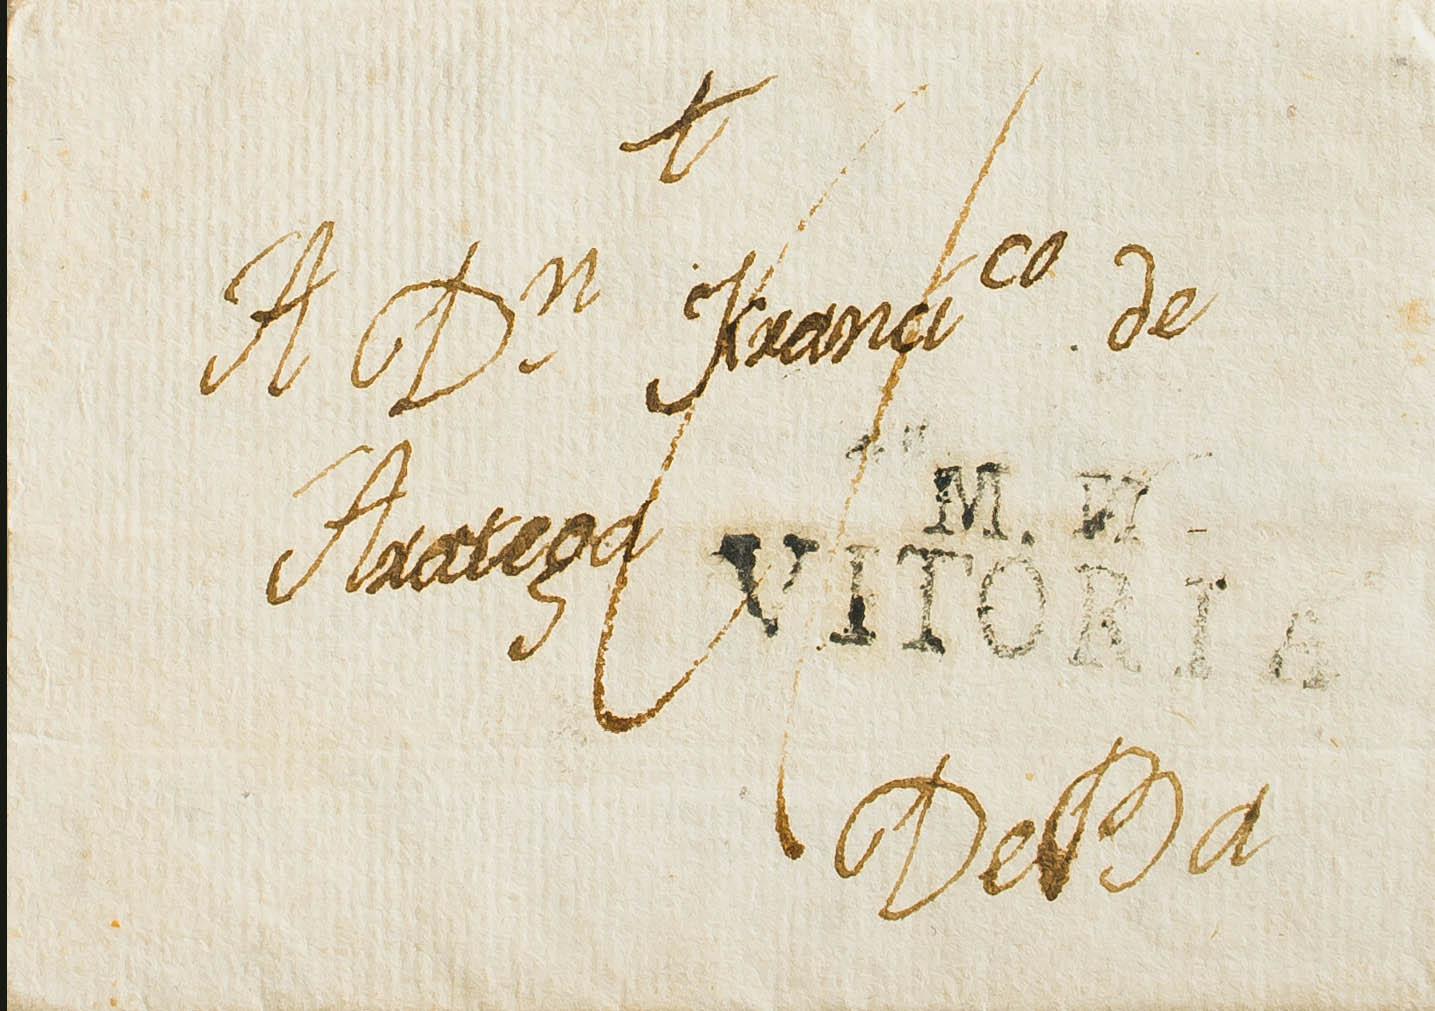 t
A Dn Francco de
Aratega
M. N
VITORIA
DeBa